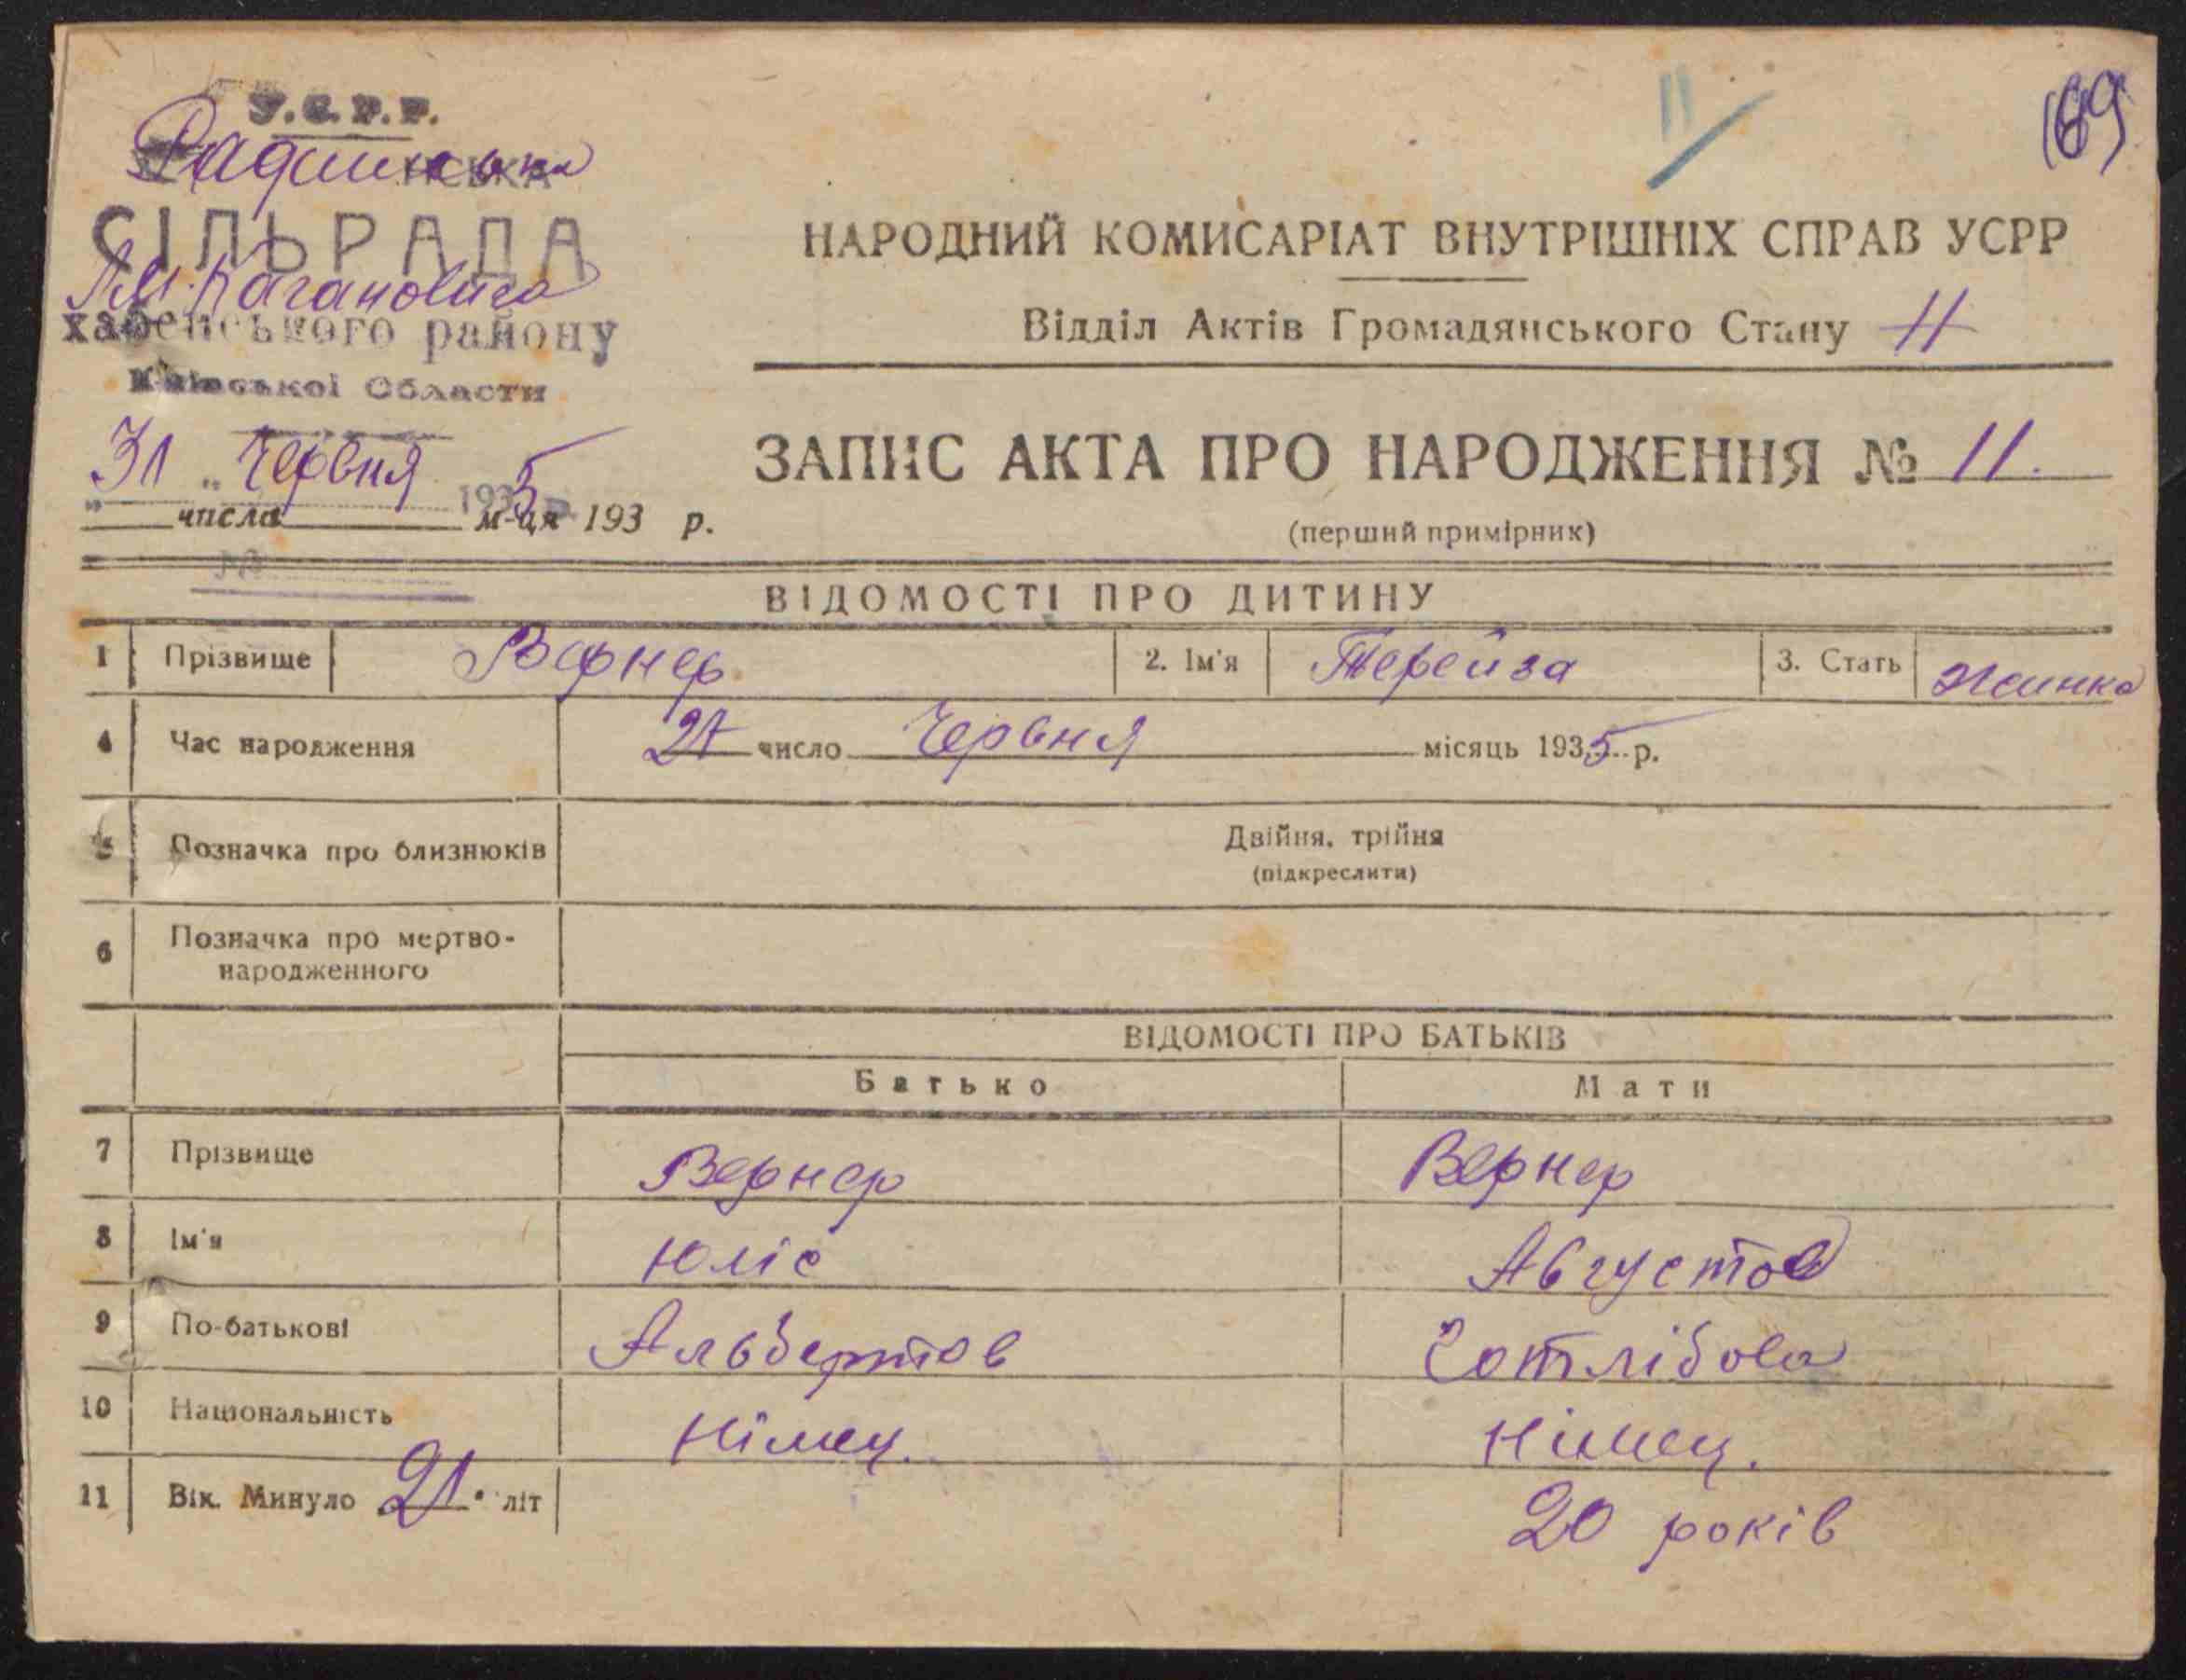 У.С.Р.Р.
СІЛЬРАДА
Ім. Кагановича
хабенського району
Київської Области
31 " Червня 1935
числа м-ця 193 р.
11
169
НАРОДНИЙ КОМИСАРІАТ ВНУТРІШНІХ СПРАВ УСРР
Відділ Актів Громадянського Стану 11
ЗАПИС АКТА ПРО НАРОДЖЕННЯ № 11.
(перший примірник)
ВІДОМОСТІ ПРО ДИТИНУ
1 Прізвище Вернер 2. Ім'я Терейза 3. Стать Жинка
4 Час народження число Червня місяць 1935 р.
5 Позначка про близнюків Двійня, трійня
(підкреслити)
6 Позначка про мертво-
народженного
ВІДОМОСТІ ПРО БАТЬКІВ
Батько Мати
7 Прізвище Вернер Вернер
8 Ім'я Юліс Августов
9 По-батькові Альбертов Готлібова
10 Національність Німец. Німец.
11 Вік. Минуло 21 літ 20 років